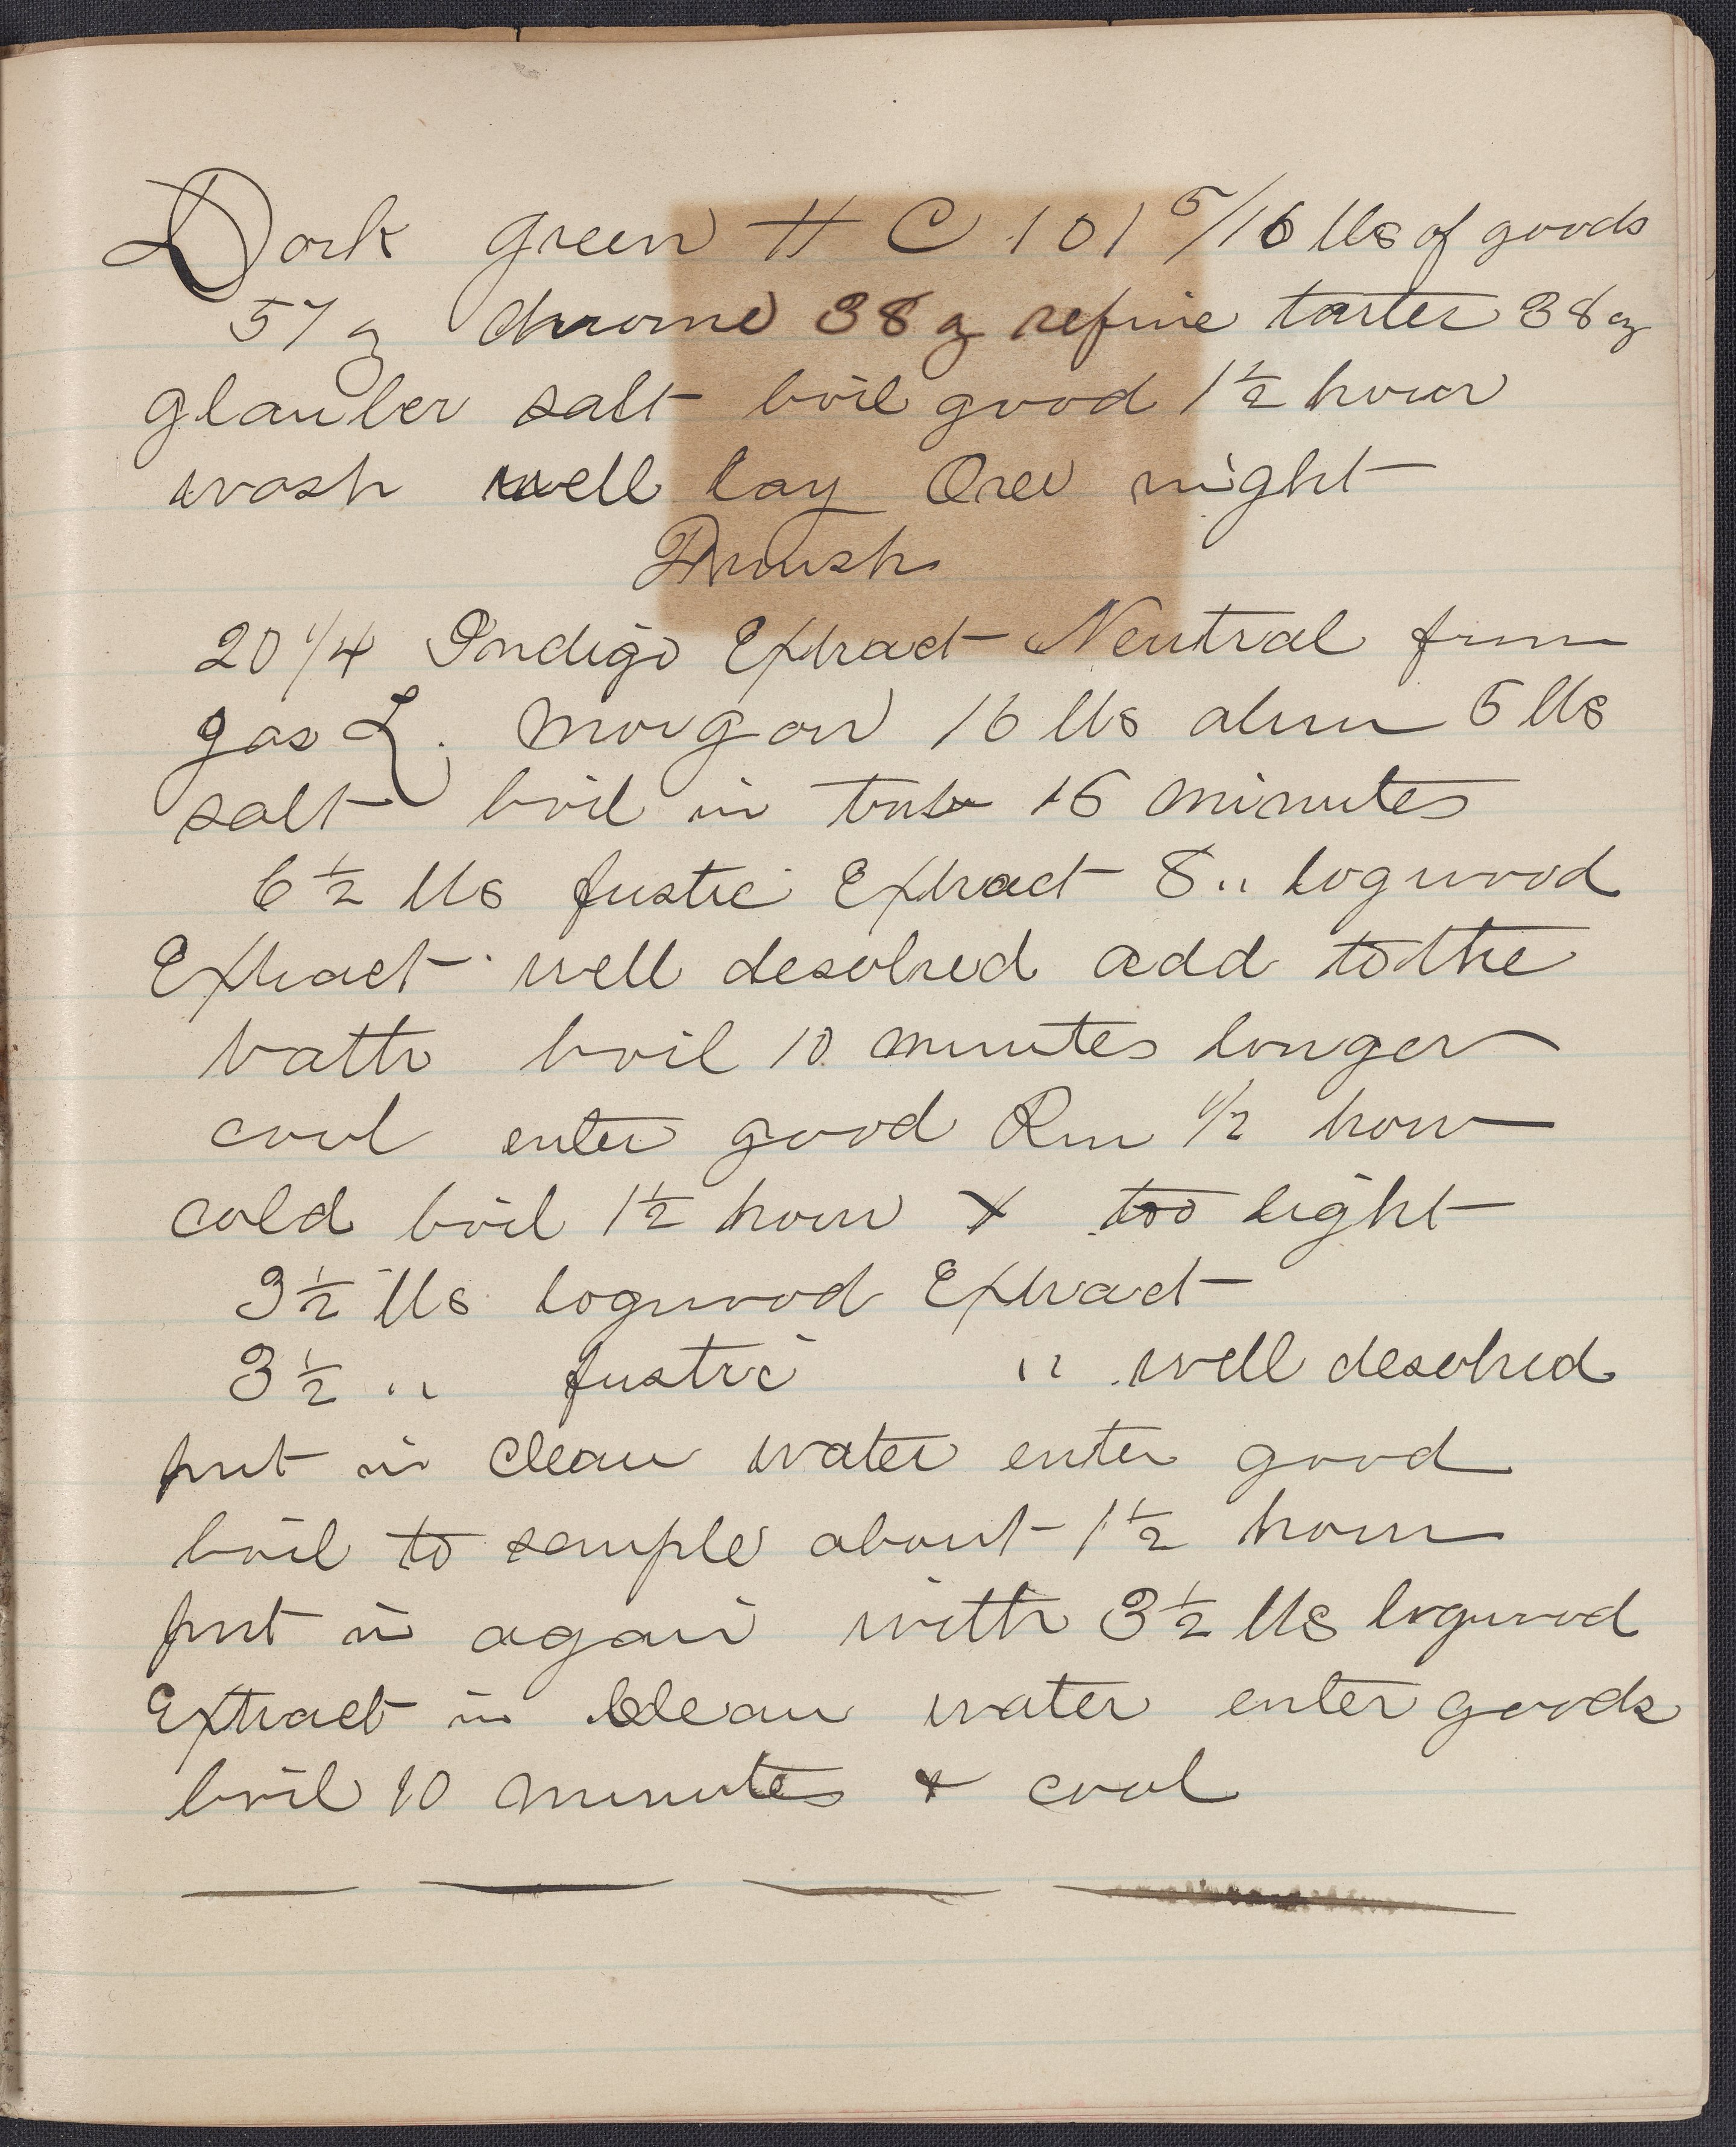 Dark green # C 101 5/16 lbs of goods
57 oz chrome 38 oz refine tarter 38 oz
glauber salt boil good 1½ hour
wash well lay over night
Finish
20 1/4 Indigo Extract Neutral from
gas L. Morgan 16 lbs alum 5 lbs
salt boil in tub 15 minutes
6½ lbs fustic Extract 8 " logwood
Extract well desolved add to the
bath boil 10 minutes longer
cool enter good Run 1/2 hour
cold boil 1½ hour & too light
3½ lbs logwood Extract
3½ " fustic " well desolved
put in clean water enter good
boil to sample about 1½ hour
put in again with 3½ lbs logwood
Extract in clean water enter goods
boil 10 minutes & cool